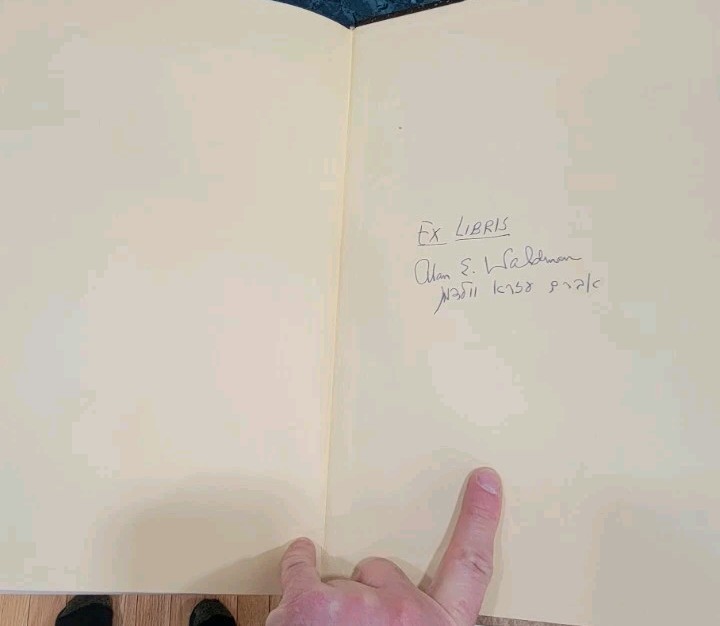 Ex LIBRIS
Alan E. Waldman
אברם עזרא וולדמן